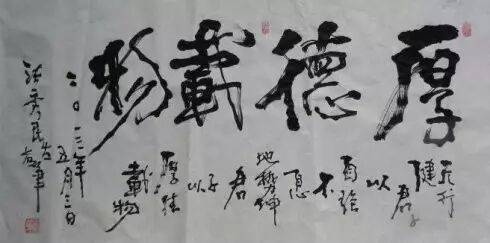 厚德載物
天行
健君子
以
自强
不
息
地勢坤
君
子
以
厚德
載物
二〇一三年
五月三日
秀民左筆